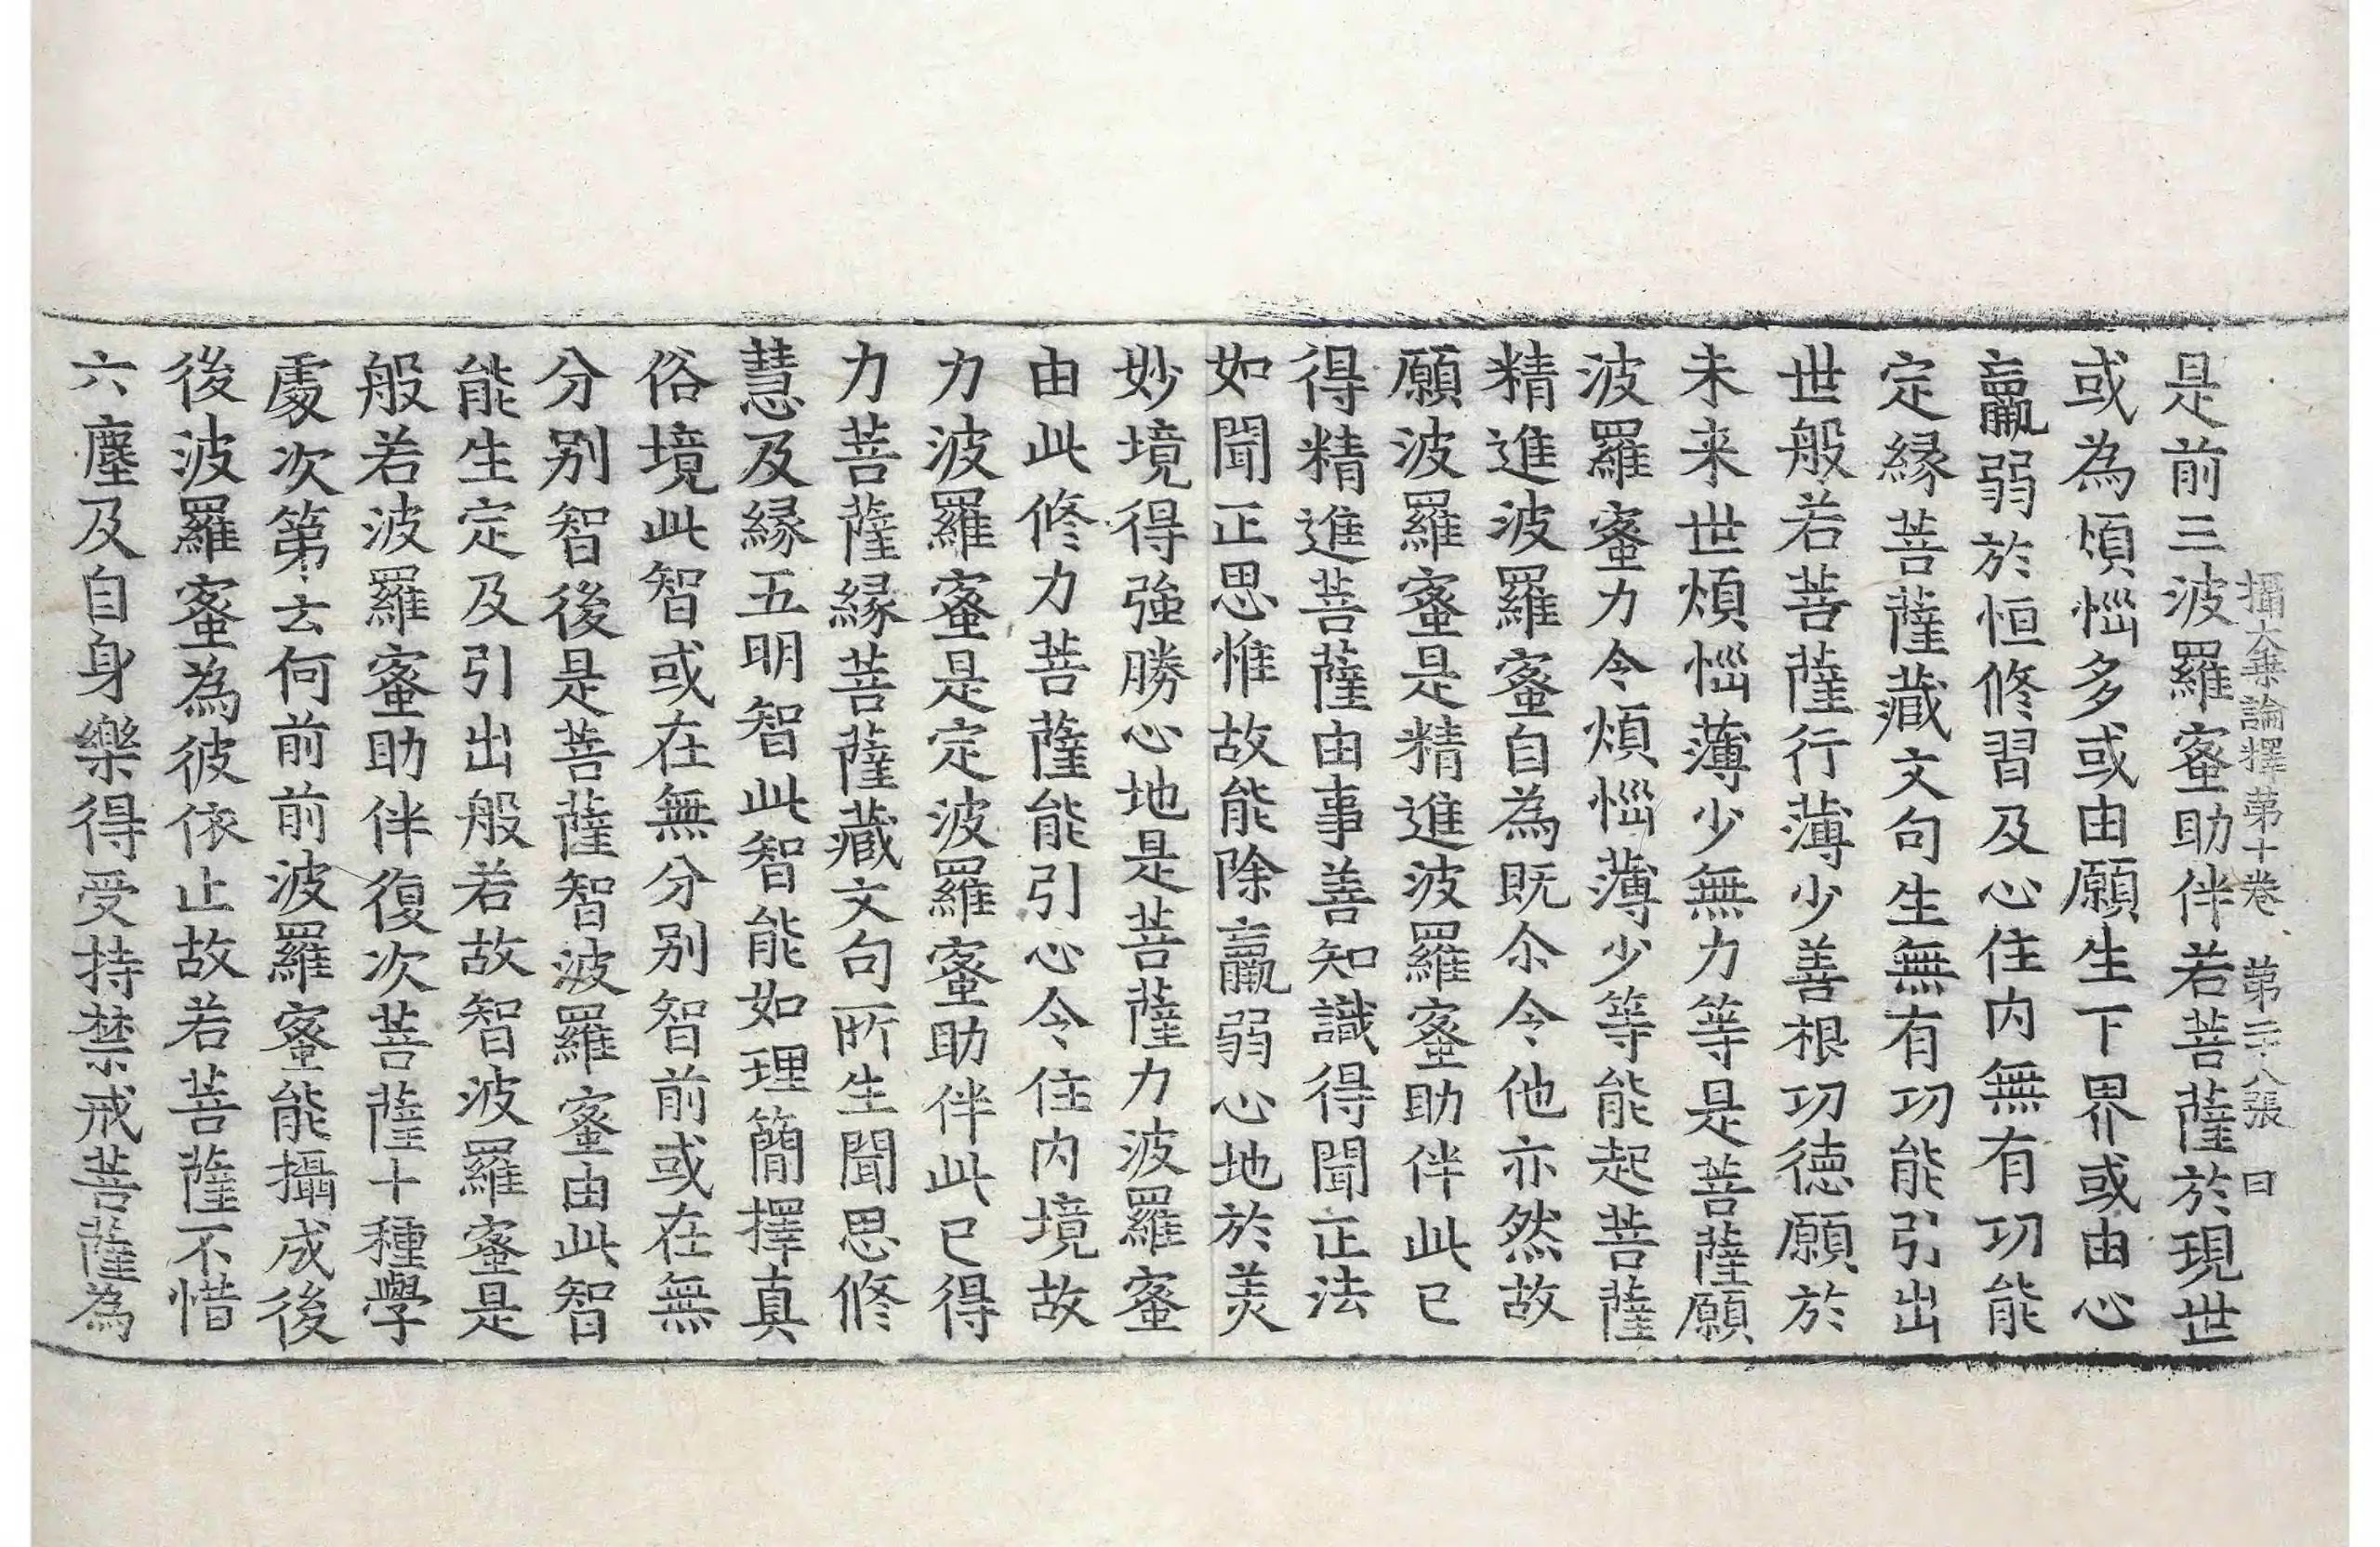 攝大乗論釋第十卷 第二十八張 曰
是前三波羅蜜助伴若菩薩於現世
或為煩惱多或由願生下界或由心
羸弱於恒修習及心住内無有功能
定縁菩薩藏文句生無有功能引出
世般若菩薩行薄少善根功德願於
未来世煩惱薄少無力等是菩薩願
波羅蜜力令煩惱薄少等能起菩薩
精進波羅蜜自為既尒令他亦然故
願波羅蜜是精進波羅蜜助伴此已
得精進菩薩由事善知識得聞正法
如聞正思惟故能除羸弱心地於羙
妙境得強勝心地是菩薩力波羅蜜
由此修力菩薩能引心令住内境故
力波羅蜜是定波羅蜜助伴此已得
力菩薩縁菩薩藏文句所生聞思修
慧及縁五明智此智能如理簡擇真
俗境此智或在無分别智前或在無
分别智後是菩薩智波羅蜜由此智
能生定及引出般若故智波羅蜜是
般若波羅蜜助伴復次菩薩十種學
處次第云何前前波羅蜜能攝成後
後波羅蜜為彼依止故若菩薩不惜
六塵及自身樂得受持禁戒菩薩為